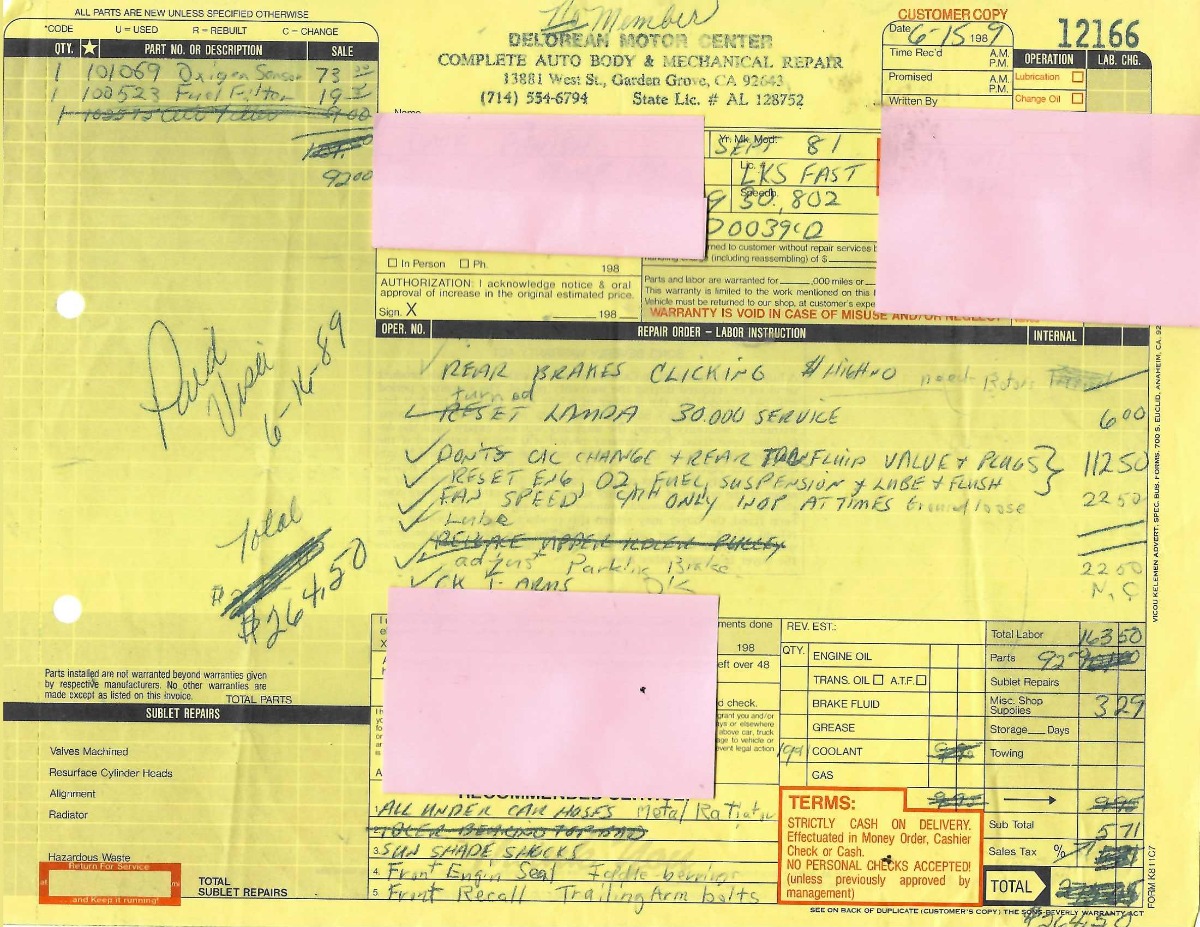 ALL PARTS ARE NEW UNLESS SPECIFIED OTHERWISE
*CODE U = USED R = REBUILT C = CHANGE
QTY. ★ PART NO. OR DESCRIPTION SALE
1 101069 Oxigen Sensor 73
1 100523 Fuel Filter 19
1
92 00
Member
DELOREAN MOTOR CENTER
COMPLETE AUTO BODY & MECHANICAL REPAIR
13881 West St., Garden Grove, CA 92643
(714) 554-6794 State Lic. # AL 128752
CUSTOMER COPY
Date 6-15 1989
12166
Time Rec'd A.M. P.M.
Promised A.M. P.M.
Written By
OPERATION LAB. CHG.
Lubrication
Change Oil
Name
Yr. Mk. Mod.
SEPT 81
Lic. #
LKS FAST
Speedo.
30,802
In Person Ph. 198
AUTHORIZATION: I acknowledge notice & oral
approval of increase in the original estimated price.
Sign. X 198
rned to customer without repair services
(including reassembling) of $
Parts and labor are warranted for ,000 miles or
This warranty is limited to the work mentioned on this
Vehicle must be returned to our shop, at customer's expe
WARRANTY IS VOID IN CASE OF MISUSE AND/OR NEGLECT
OPER. NO. REPAIR ORDER – LABOR INSTRUCTION INTERNAL
REAR BRAKES CLICKING need Rotors
turned
RESET LAMDA 30.000 SERVICE 6 00
CHANGE + REAR FLUID VALUE + PLUGS 112 50
RESET ENG, O2, FUEL, SUSPENSION & LUBE + FLUSH
FAN SPEED ONLY INOP AT TIMES Ground loose 22 50
Lube
REPLACE UPPER IDLER PULLEY
adjust Parking Brake 22 00
CK T-ARMS O'K N.C
Paid
Visa
6-16-89
Total
$264.50
Parts installed are not warranted beyond warranties given
by respective manufacturers. No other warranties are
made except as listed on this invoice.
TOTAL PARTS
SUBLET REPAIRS
Valves Machined
Resurface Cylinder Heads
Alignment
Radiator
Hazardous Waste
Return For Service
at mi
...and Keep it running!
TOTAL
SUBLET REPAIRS
ments done
198
eft over 48
d check.
grant you and/or
ys or elsewhere
above car, truck
age to vehicle or
event legal action
1. ALL UNDER CAR HOSES Metal
2. IDLER BEARING TOP BAD
3. SUN SHADE SHOCKS
4. Front Engin Seal
5. Front Recall Trailing Arm bolts
REV. EST.:
QTY.
ENGINE OIL
TRANS. OIL A.T.F.
BRAKE FLUID
GREASE
COOLANT
GAS
Total Labor 163 50
Parts 92
Sublet Repairs
Misc. Shop Supplies 3 29
Storage Days
Towing
9 95
Sub Total
Sales Tax % 5 71
TOTAL
$264.50
TERMS:
STRICTLY CASH ON DELIVERY.
Effectuated in Money Order, Cashier
Check or Cash.
NO PERSONAL CHECKS ACCEPTED!
(unless previously approved by
management)
SEE ON BACK OF DUPLICATE (CUSTOMER'S COPY) THE SONG-BEVERLY WARRANTY ACT
FORM K811C7
VICOU KELEMEN ADVERT. SPEC. BUS. FORMS, 700 S. EUCLID, ANAHEIM, CA. 92